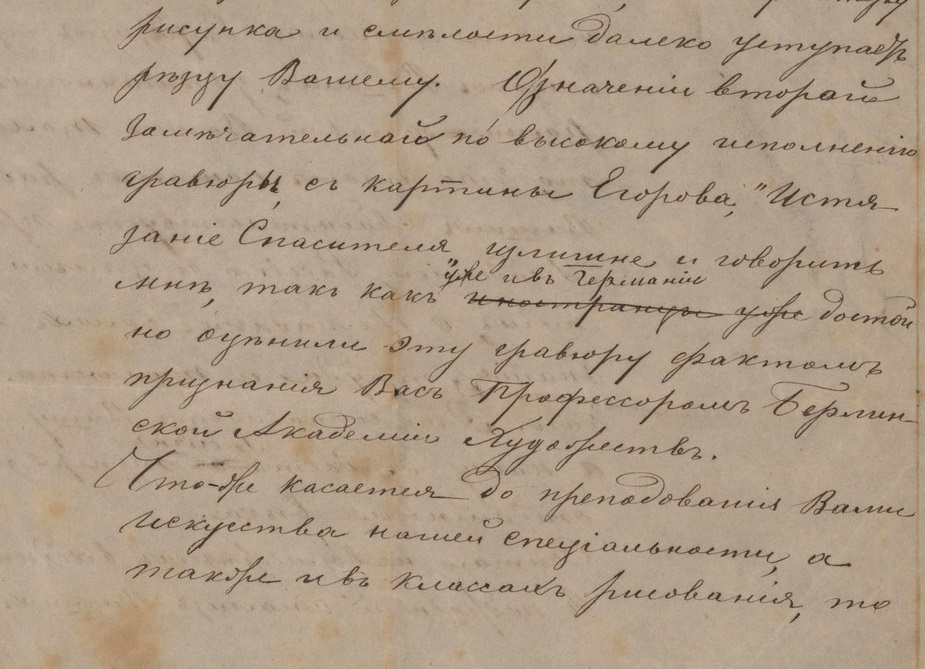 рисунка и смѣлости далеко уступаетъ
рѣзцу Вашему. О значеніи второй
замѣчательной по высокому исполненію
гравюры, съ картины Егорова, "Истя
заніе Спасителя" излишне и говорить
уже и въ Германіи
мнѣ, такъ какъ иностранцы уже достой
но оцѣнили эту гравюру фактомъ
признанія Васъ Профессоромъ Берлин-
ской Академіи Художествъ.
Что-же касается до преподаванія Вами
искусства нашей спеціальности, а
также и въ классахъ рисованія, то